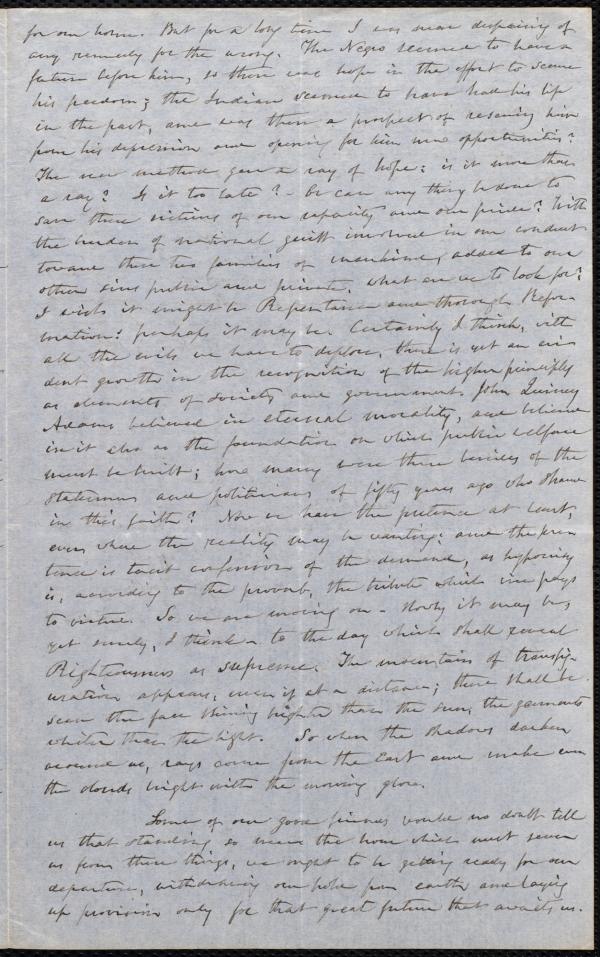 for our home. But for a long time I was near despairing of
any remedy for the wrong. The Negro seemed to have a
future before him, so there was hope in the effort to secure
his freedom; the Indian seemed to have had his life
in the past, and was there a prospect of rescuing him
from his depression and opening for him new opportunities?
The new method gave a ray of hope: is it more than
a ray? Is it too late? - Or can any thing be done to
save these victims of our rapacity and our pride? With
the burden of national guilt involved in our conduct
toward these two families of mankind, added to our
other sins public and private, what are we to look for?
I wish it might be Repentance and thorough Refor-
mation: perhaps it may be. Certainly I think, with
all the evils we have to deplore, there is yet an evi-
dent growth in the recognition of the higher principles
as elements of society and government. John Quincy
Adams believed in eternal morality, and believed
in it also as the foundation on which public welfare
must be built; how many were there besides of the
statesmen and politicians of fifty years ago who shared
in this faith? Now we have the pretence at least,
even where the reality may be wanting: and the pre-
tence is tacit confession of the demand, as hypocrisy
is, according to the proverb, the tribute which vice pays
to virtue. So we are moving on - slowly it may be,
yet surely, I think - to the day which shall reveal
Righteousness as supreme. The mountain of transfig-
uration appears, even if at a distance; there shall be
seen the face shining brighter than the sun, the garments
whiter than the light. So when the shadows darken
around us, rays come from the East and make even
the clouds bright with the morning glow.
Some of our good friends would no doubt tell
us that standing so near the hour which must sever
us from these things, we ought to be getting ready for our
departure, withdrawing our hold from earth and laying
up provision only for that great future that awaits us.